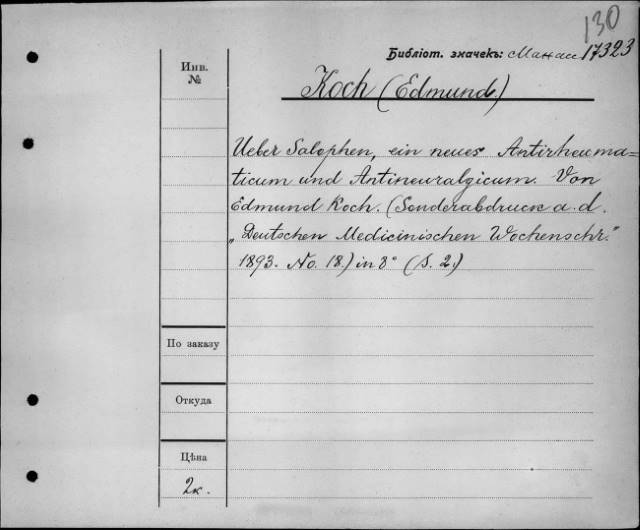 130
Библіот. значекъ: Махаи 17323
Инв.
№
Koch (Edmund.)
Ueber Salophen, ein neues Antirheuma=
ticum und Antineuralgicum. Von
Edmund Koch. (Sonderabdruck a. d.
„Deutschen Medicinischen Wochenschr."
1893. No. 18.) in 8° (S. 2.)
По заказу
Откуда
Цѣна
2к.